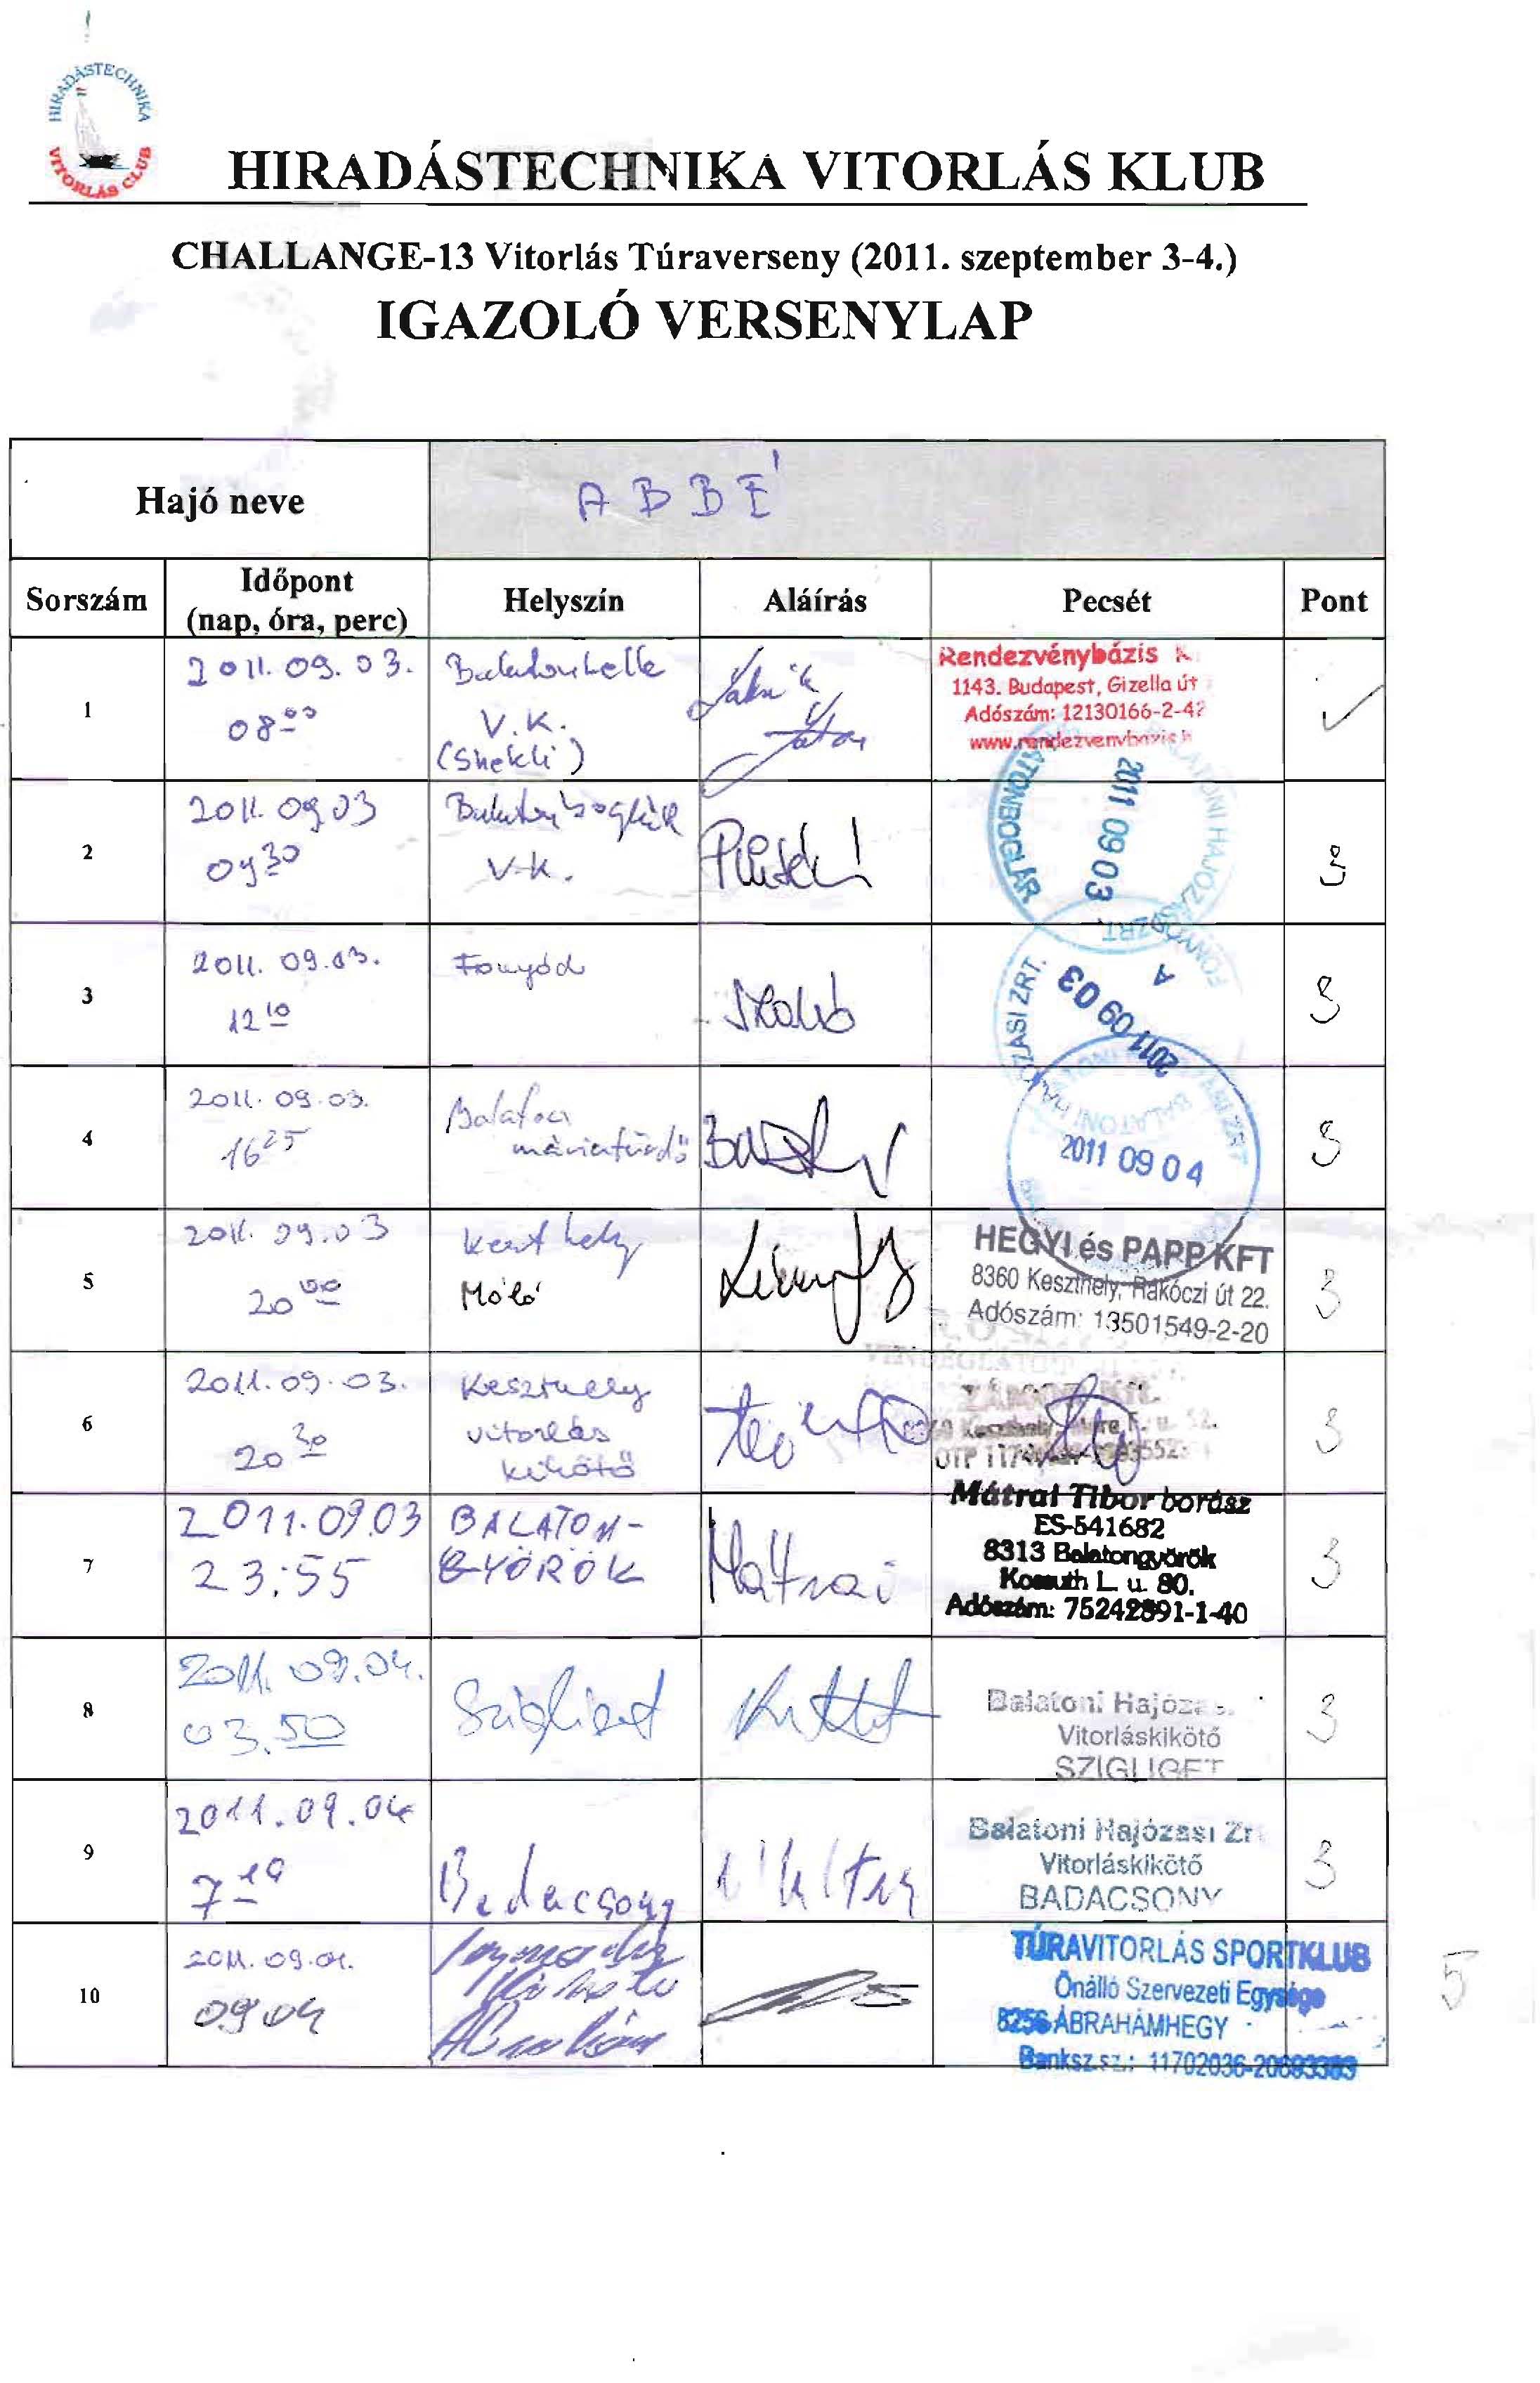 HIRADÁSTECHNIKA
VITORLÁS CLUB
HIRADÁSTECHNIKA VITORLÁS KLUB
CHALLANGE-13 Vitorlás Túraverseny (2011. szeptember 3-4.)
IGAZOLÓ VERSENYLAP
Hajó neve
ABBÉ
Sorszám
Időpont
(nap, óra, perc)
Helyszín
Aláírás
Pecsét
Pont
1
2011. 09. 03.
08 00
Balatonlelle
V.K.
(Shekli)
Rendezvénybázis K
1143. Budapest, Gizella út
Adószám: 12130166-2-42
www.rendezvenybazis.h
2
2011. 09 03
09 30
Balatonboglár
V.K.
BALATONBOGLÁR
2011 09 03
3
3
2011. 09.03.
12 10
Fonyód
Szabó
2011 09 03
A
3
4
2011. 09.03.
16 25
Balaton
máriafürdő
2011 09 04
3
5
2011. 09.03
20 00
Keszthely
Móló
HEGYI és PAPP KFT
8360 Keszthely, Rákóczi út 22.
Adószám: 13501549-2-20
3
6
2011. 09. 03.
20 30
Keszthely
vitorlás
kikötő
3
7
2011.09.03
23:55
BALATON-
GYÖRÖK
Mátrai
Mátrai Tibor borász
ES-541682
8313 Balatongyörök
Kossuth L. u. 80.
Adószám: 75242891-1-40
3
8
2011. 09.04.
03.50
Szigliget
Balatoni Hajózás
Vitorláskikötő
SZIGLIGET
3
9
2011.09.04
7 10
Badacsony
Balatoni Hajózási Zrt
Vitorláskikötő
BADACSONY
3
10
2011. 09.04.
09 04
TÚRAVITORLÁS SPORTKLUB
Önálló Szervezeti Egysége
8256 ÁBRAHÁMHEGY
Banksz.sz.: 11702036-20683383
5